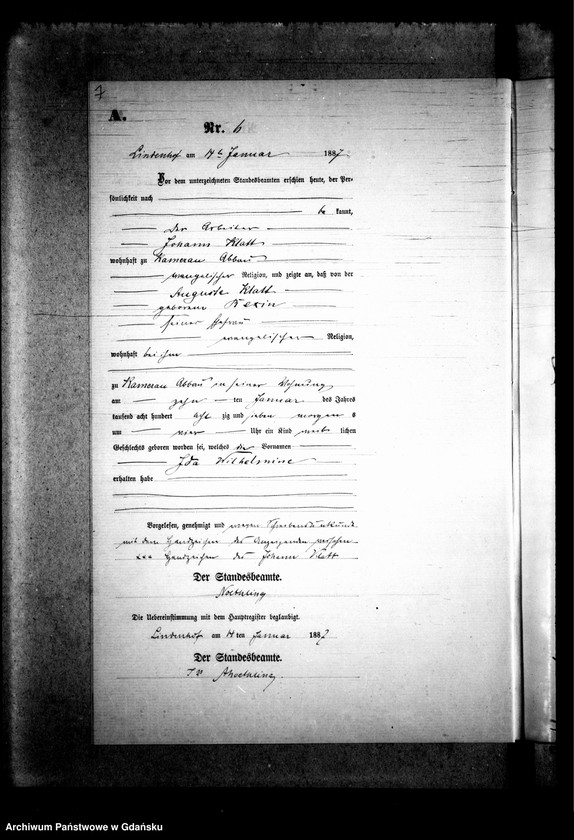 7
A.
Nr. 6
Lindenhof am 14ten Januar 1887
Vor dem unterzeichneten Standesbeamten erschien heute, der Per-
sönlichkeit nach
be kannt,
der Arbeiter
Johann Klatt
wohnhaft zu Kamerau Abbau
evangelischer Religion, und zeigte an, daß von der
Auguste Klatt
geborene Rexin
seiner Ehefrau
evangelischer Religion,
wohnhaft bei ihm
zu Kamerau Abbau in seiner Wohnung
am zehn ten Januar des Jahres
tausend acht hundert acht zig und sieben morgen s
um vier Uhr ein Kind weib lichen
Geschlechts geboren worden sei, welches die Vornamen
Ida Wilhelmine
erhalten habe
Vorgelesen, genehmigt und wegen Schreibensunkunde
mit dem Handzeichen des Anzeigenden versehen
xxx Handzeichen des Johann Klatt
Der Standesbeamte.
Noethling
Die Uebereinstimmung mit dem Hauptregister beglaubigt.
Lindenhof am 14 ten Januar 1887
Der Standesbeamte.
Archiwum Państwowe w Gdańsku